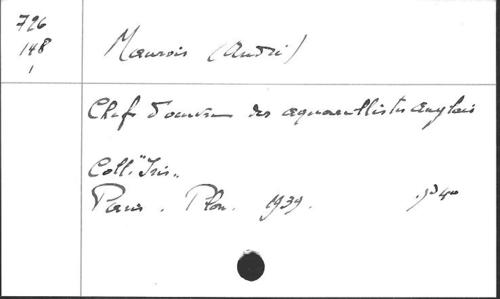 726
148
1
Maurois (André)
Chefs d'oeuvre des aquarellistes anglais
Coll. "Iris"
Paris. Plon. 1939.